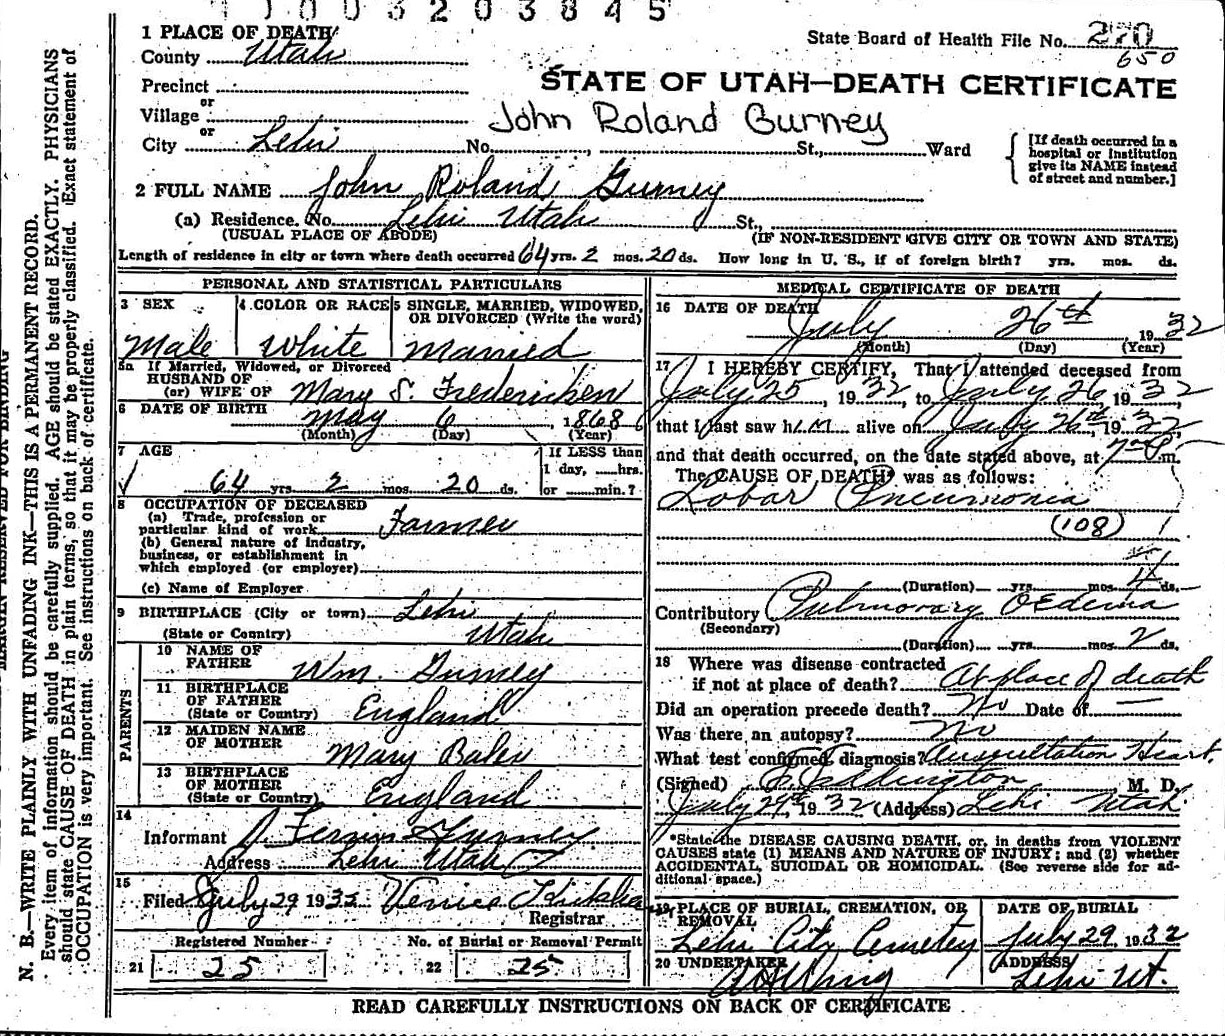 1 0 0 3 2 0 3 8 4 5
1 PLACE OF DEATH
County Utah
State Board of Health File No. 270
650
Precinct
STATE OF UTAH—DEATH CERTIFICATE
or
Village
John Roland Gurney
or
City Lehi No. , St., Ward
[If death occurred in a
hospital or institution
give its NAME instead
of street and number.]
2 FULL NAME John Roland Gurney
(a) Residence. No. Lehi Utah St.,
(USUAL PLACE OF ABODE) (IF NON-RESIDENT GIVE CITY OR TOWN AND STATE)
Length of residence in city or town where death occurred 64 yrs. 2 mos. 20 ds. How long in U. S., if of foreign birth? yrs. mos. ds.
PERSONAL AND STATISTICAL PARTICULARS
3 SEX
Male
4 COLOR OR RACE
White
5 SINGLE, MARRIED, WIDOWED,
OR DIVORCED (Write the word)
Married
5a If Married, Widowed, or Divorced
HUSBAND OF
(or) WIFE OF Mary S. Fredericksen
6 DATE OF BIRTH May 6, 1868
(Month) (Day) (Year)
7 AGE
64 yrs. 2 mos. 20 ds.
If LESS than
1 day, ......hrs.
or .......min.?
8 OCCUPATION OF DECEASED
(a) Trade, profession or
particular kind of work Farmer
(b) General nature of industry,
business, or establishment in
which employed (or employer)
(c) Name of Employer
9 BIRTHPLACE (City or town) Lehi
(State or Country) Utah
PARENTS
10 NAME OF
FATHER Wm. Gurney
11 BIRTHPLACE
OF FATHER
(State or Country) England
12 MAIDEN NAME
OF MOTHER Mary Bales
13 BIRTHPLACE
OF MOTHER
(State or Country) England
14
Informant J. Gurney
Address Lehi Utah
15
Filed July 29 1932 Venice
Registrar
Registered Number
21 25
No. of Burial or Removal Permit
22 25
MEDICAL CERTIFICATE OF DEATH
16 DATE OF DEATH
July 26th 1932
(Month) (Day) (Year)
17 I HEREBY CERTIFY, That I attended deceased from
July 25, 1932, to July 26, 1932,
that I last saw him alive on July 26th, 1932,
and that death occurred, on the date stated above, at 7 P. m.
The CAUSE OF DEATH* was as follows:
Lobar Pneumonia
(108)
(Duration) yrs. mos. 4 ds.
Contributory Pulmonary OEdema
(Secondary)
(Duration) yrs. mos. 2 ds.
18 Where was disease contracted
if not at place of death? At place of death
Did an operation precede death? No Date of —
Was there an autopsy? No
What test confirmed diagnosis? Auscultation Heart.
(Signed) Eddington M. D.
July 29th, 1932 (Address) Lehi Utah.
*State the DISEASE CAUSING DEATH, or, in deaths from VIOLENT
CAUSES state (1) MEANS AND NATURE OF INJURY; and (2) whether
ACCIDENTAL, SUICIDAL OR HOMICIDAL. (See reverse side for ad-
ditional space.)
19 PLACE OF BURIAL, CREMATION, OR
REMOVAL
Lehi City Cemetery
DATE OF BURIAL
July 29 1932
20 UNDERTAKER
ADDRESS
Lehi Ut.
READ CAREFULLY INSTRUCTIONS ON BACK OF CERTIFICATE
MARGIN RESERVED FOR BINDING
N. B.—WRITE PLAINLY WITH UNFADING INK—THIS IS A PERMANENT RECORD.
Every item of information should be carefully supplied. AGE should be stated EXACTLY. PHYSICIANS
should state CAUSE OF DEATH in plain terms, so that it may be properly classified. Exact statement of
OCCUPATION is very important. See instructions on back of certificate.